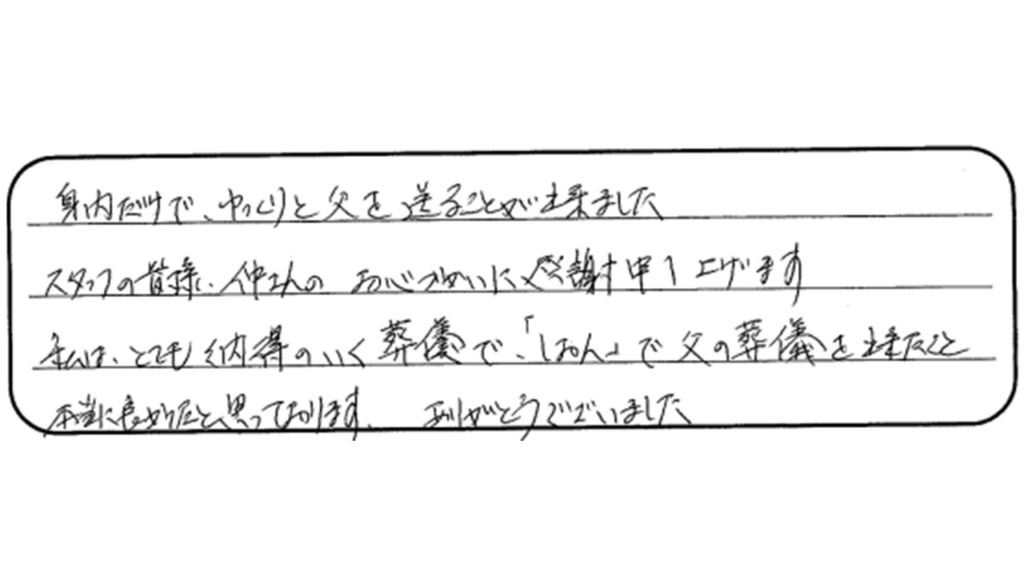 身内だけで、ゆっくりと父を送ることが出来ました
スタッフの皆様、仲さんの お心づかいに感謝申し上げます
私は、とても納得のいく葬儀で、「しおん」で父の葬儀を出来たこと
本当に良かったと思っております。 ありがとうございました